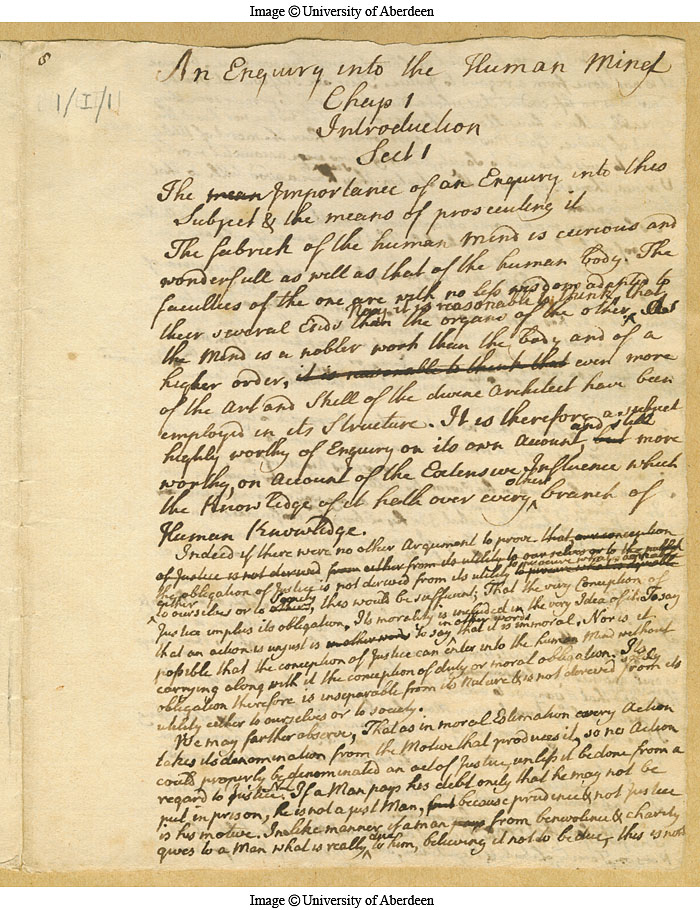 Image © University of Aberdeen
8
1/I/1
An Enquiry into the Human Mind
Chap 1
Introduction
Sect 1
The mean Importance of an Enquiry into this
Subject & the means of prosecuting it
The fabrick of the human mind is curious and
wonderfull as well as that of the human body. The
faculties of the one are with no less wisdom adapted to
their several Ends than the organs of the other,
Nay it is reasonable to think that
the Mind is a nobler work than the body and of a
higher order, it is reasonable to think that even more
of the Art and Skill of the divine Architect have been
employed in its Structure. It is therefore a subject
highly worthy of Enquiry on its own account, but more
and still
worthy on Account of the Extensive Influence which
the Knowledge of it hath over every branch of
other
Human Knowledge.
Indeed if there were no other Argument to prove that our conception
of Justice is not derived from either from its utility to ourselves or to the publick
the obligation of Justice is not derived from its utility to procure what is agreable
either
to ourselves or to others, this would be sufficient, That the very Conception of
Society
Justice implies its obligation. Its morality is included in the very Idea of it. To say
that an action is unjust is in other words to say that it is immoral. Nor is it
in other words
possible that the conception of Justice can enter into the human Mind without
carrying along with it the conception of duty or moral obligation. Its
obligation therefore is inseparable from its Nature & is not derived from its
solely
utility either to ourselves or to society.
We may farther observe, That as in moral Estimation every Action
takes its denomination from the Motive that produces it, so no Action
could properly be denominated an act of Justice, unless it be done from a
regard to Justice. If a Man pays his debt only that he may not be
put in prison, he is not a just Man, because prudence & not Justice
is his motive. In like manner if a man from benevolence & charity
gives to a Man what is really to him, believing it not to be due, this is not
due
Image © University of Aberdeen